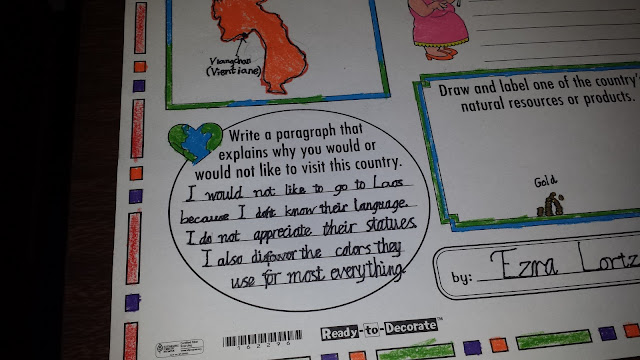 Viangchan
(Vientiane)
Write a paragraph that
explains why you would or
would not like to visit this country.
I would not like to go to Laos
because I don't know their language.
I do not appreciate their statues.
I also disfavor the colors they
use for most everything.
Draw and label one of the country's
natural resources or products.
Gold
by: Ezra Lortz
162296
Ready-to-Decorate™